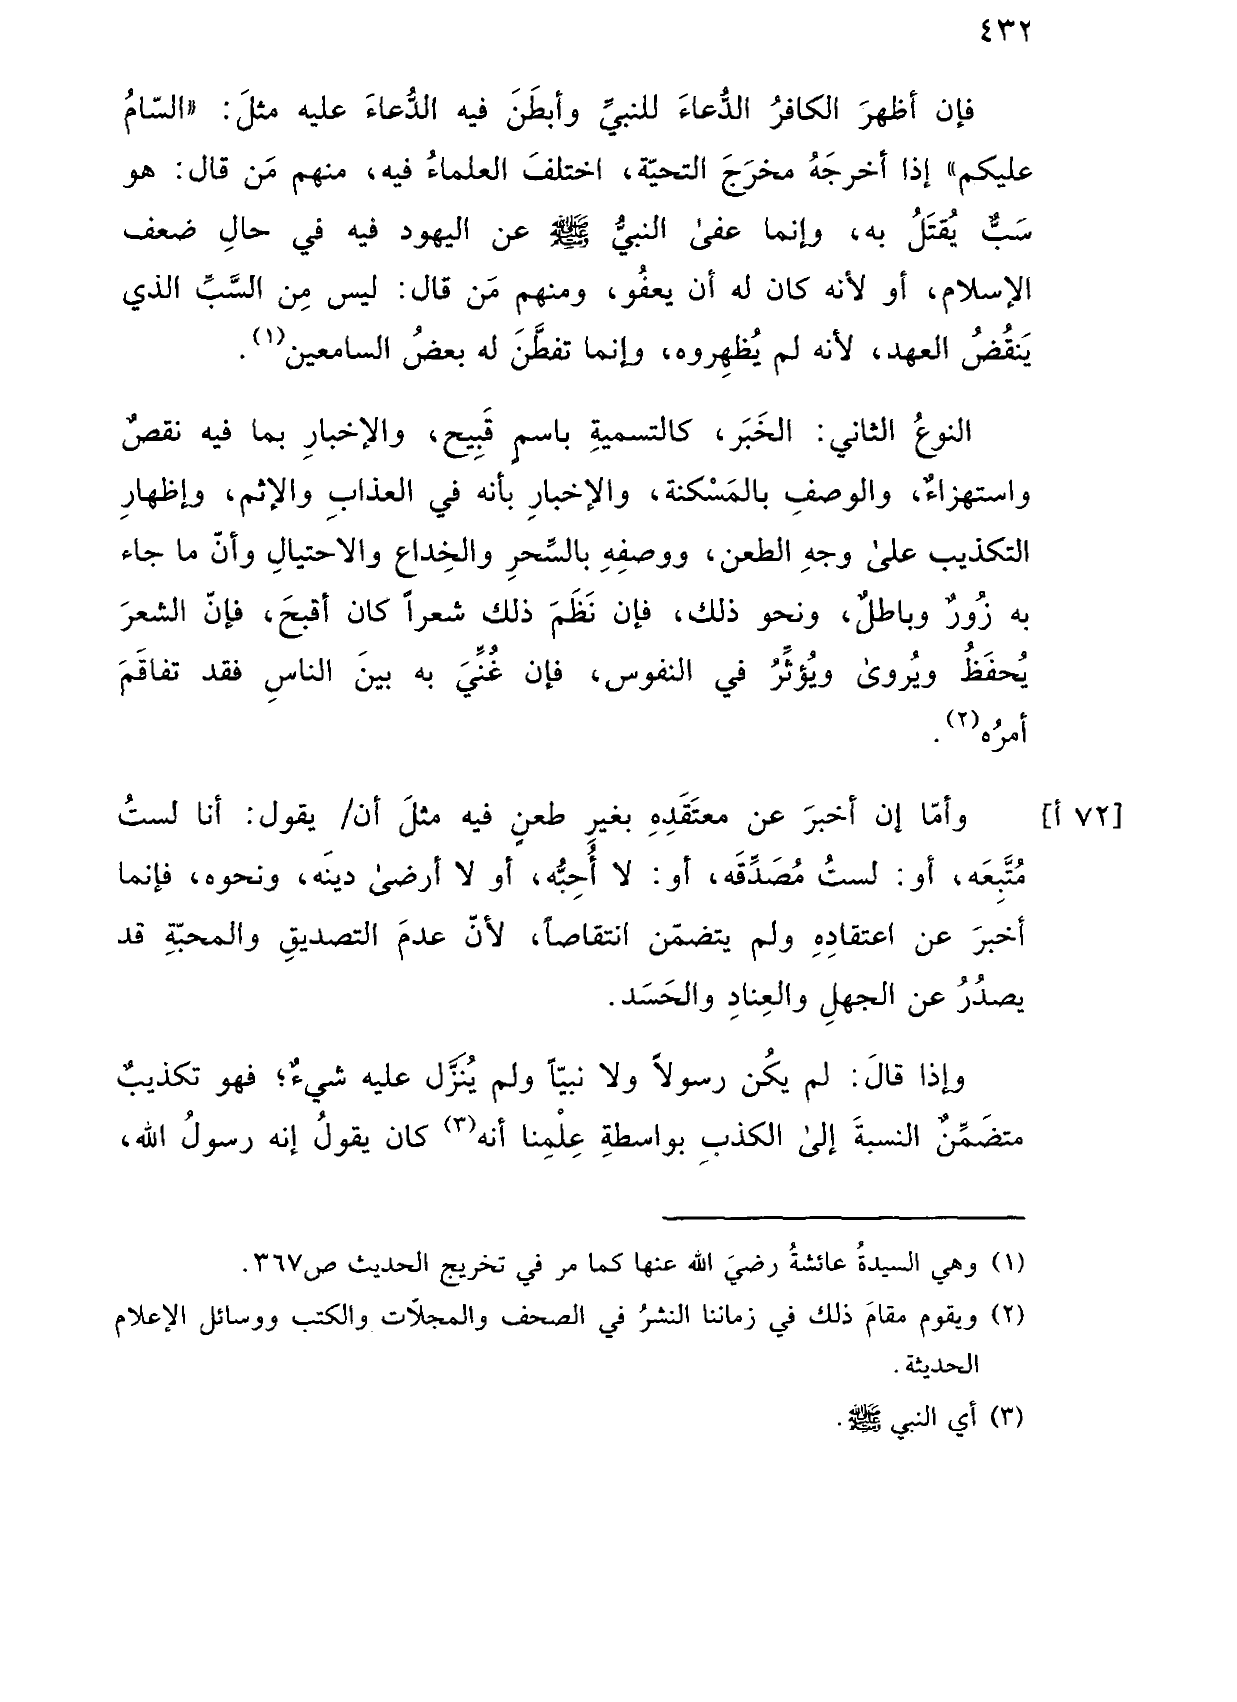 ٤٣٢
فإن أظهرَ الكافرُ الدُّعاءَ للنبيِّ وأبطَنَ فيه الدُّعاءَ عليه مثلَ: «السّامُ
عليكم» إذا أخرجَهُ مخرَجَ التحيّة، اختلفَ العلماءُ فيه، منهم مَن قال: هو
سَبٌّ يُقتَلُ به، وإنما عفىٰ النبيُّ ﷺ عن اليهود فيه في حالِ ضعف
الإسلام، أو لأنه كان له أن يعفُو، ومنهم مَن قال: ليس مِن السَّبِّ الذي
يَنقُضُ العهد، لأنه لم يُظهِروه، وإنما تفطَّنَ له بعضُ السامعين(١).
النوعُ الثاني: الخَبَر، كالتسميةِ باسمٍ قَبِيح، والإخبارِ بما فيه نقصٌ
واستهزاءٌ، والوصفِ بالمَسْكنة، والإخبارِ بأنه في العذابِ والإثم، وإظهارِ
التكذيب علىٰ وجهِ الطعن، ووصفِهِ بالسِّحرِ والخِداعِ والاحتيالِ وأنّ ما جاء
به زُورٌ وباطلٌ، ونحو ذلك، فإن نَظَمَ ذلك شعراً كان أقبحَ، فإنّ الشعرَ
يُحفَظُ ويُروىٰ ويُؤثِّرُ في النفوس، فإن غُنِّيَ به بينَ الناسِ فقد تفاقَمَ
أمرُه(٢).
[٧٢ أ] وأمّا إن أخبرَ عن معتَقَدِهِ بغيرِ طعنٍ فيه مثلَ أن/ يقول: أنا لستُ
مُتَّبِعَه، أو: لستُ مُصَدِّقَه، أو: لا أُحِبُّه، أو لا أرضىٰ دينَه، ونحوه، فإنما
أخبرَ عن اعتقادِهِ ولم يتضمّن انتقاصاً، لأنّ عدمَ التصديقِ والمحبّةِ قد
يصدُرُ عن الجهلِ والعِنادِ والحَسَد.
وإذا قالَ: لم يكُن رسولاً ولا نبيّاً ولم يُنَزَّل عليه شيءٌ؛ فهو تكذيبٌ
متضَمِّنٌ النسبةَ إلىٰ الكذبِ بواسطةِ عِلْمِنا أنه(٣) كان يقولُ إنه رسولُ الله،
(١) وهي السيدةُ عائشةُ رضيَ الله عنها كما مر في تخريج الحديث ص٣٦٧.
(٢) ويقوم مقامَ ذلك في زماننا النشرُ في الصحف والمجلّات والكتب ووسائل الإعلام
الحديثة.
(٣) أي النبي ﷺ.